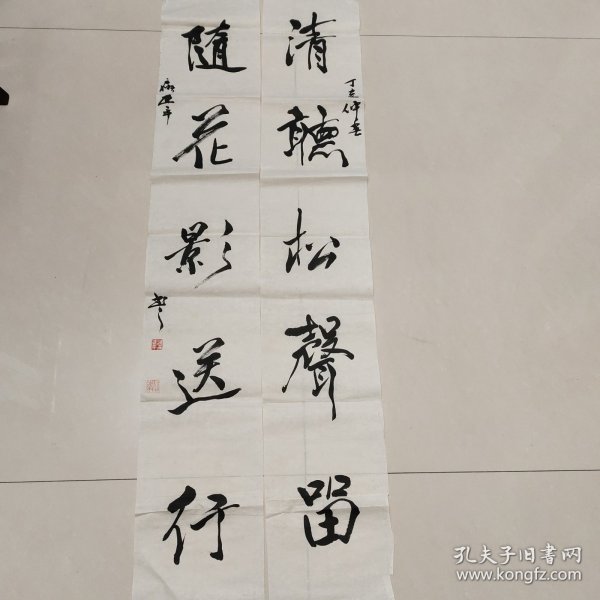 清聽松聲留
隨花影送行
孔夫子旧书网
www.kongfz.com